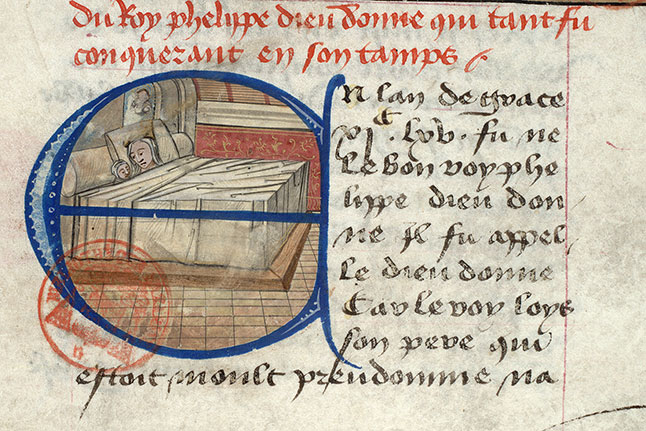 du Roy phelippe dieu donne qui tant fu
conquerant en son tamps
En lan de grace
xjC. lxv. fu ne
le bon roy phe
lippe dieu don
ne Il fu appel
le dieu donne
Car le roy loys
son pere qui
estoit moult preudomme na